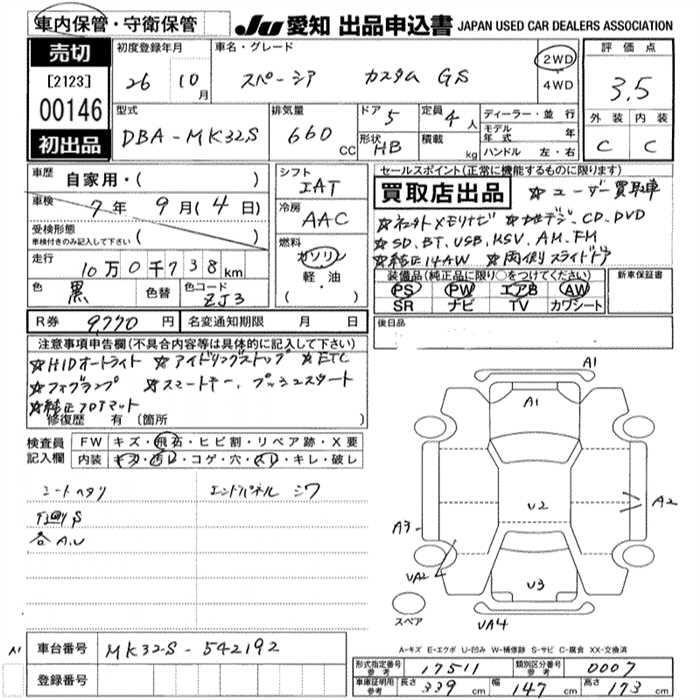 車内保管・守衛保管
JU 愛知 出品申込書 JAPAN USED CAR DEALERS ASSOCIATION
売切
[2123]
00146
初出品
初度登録年月
26 10月
車名・グレード
スペーシア カスタム GS
2WD
・
4WD
評価点
3.5
外装 内装
C C
型式
DBA-MK32S
排気量
660 CC
ドア 5
形状 HB
定員 4人
積載 kg
ディーラー・並行
モデル年式 年
ハンドル 左・右
車歴
自家用・( )
車検 7年 9月(4日)
受検形態
車検付きのみ記入して下さい ( )
走行
10万0千738km
色 黒 色替 色コード ZJ3
シフト
IAT
冷房
AAC
燃料
ガソリン
軽油
( )
セールスポイント(正常に機能するものに限ります)
買取店出品 ☆ユーザー買取車
☆SD、BT、USB、MSV、AM、FM
☆純正14AW ☆両側スライドドア
装備品(純正品に限り○をつけてください)
PS PW エアB AW
SR ナビ TV カワシート
新車保証書
後日品
R券 9,770円 名変通知期限 月 日
注意事項申告欄(不具合内容等は具体的に記入して下さい)
☆HIDオートライト ☆アイドリングストップ ☆ETC
☆フォグランプ ☆スマートキー、プッシュスタート
☆純正フロアマット
修復歴 有 〔箇所 〕
検査員記入欄
FW キズ・飛石・ヒビ割・リペア跡・X要
内装 キズ・汚レ・コゲ・穴・スレ・キレ・破レ
シートヘタリ エンドパネル シワ
下回りS
各A.U
A1
A1
U2
A2
A3
UA2
U3
UA4
スペア
A-キズ E-エクボ U-凹み W-補修跡 S-サビ C-腐食 XX-交換済
A1
車台番号 MK32S-542192
登録番号
形式指定番号 参考 17511 類別区分番号 参考 0007
車庫証明用 参考 長さ 339cm 幅 147cm 高さ 173cm